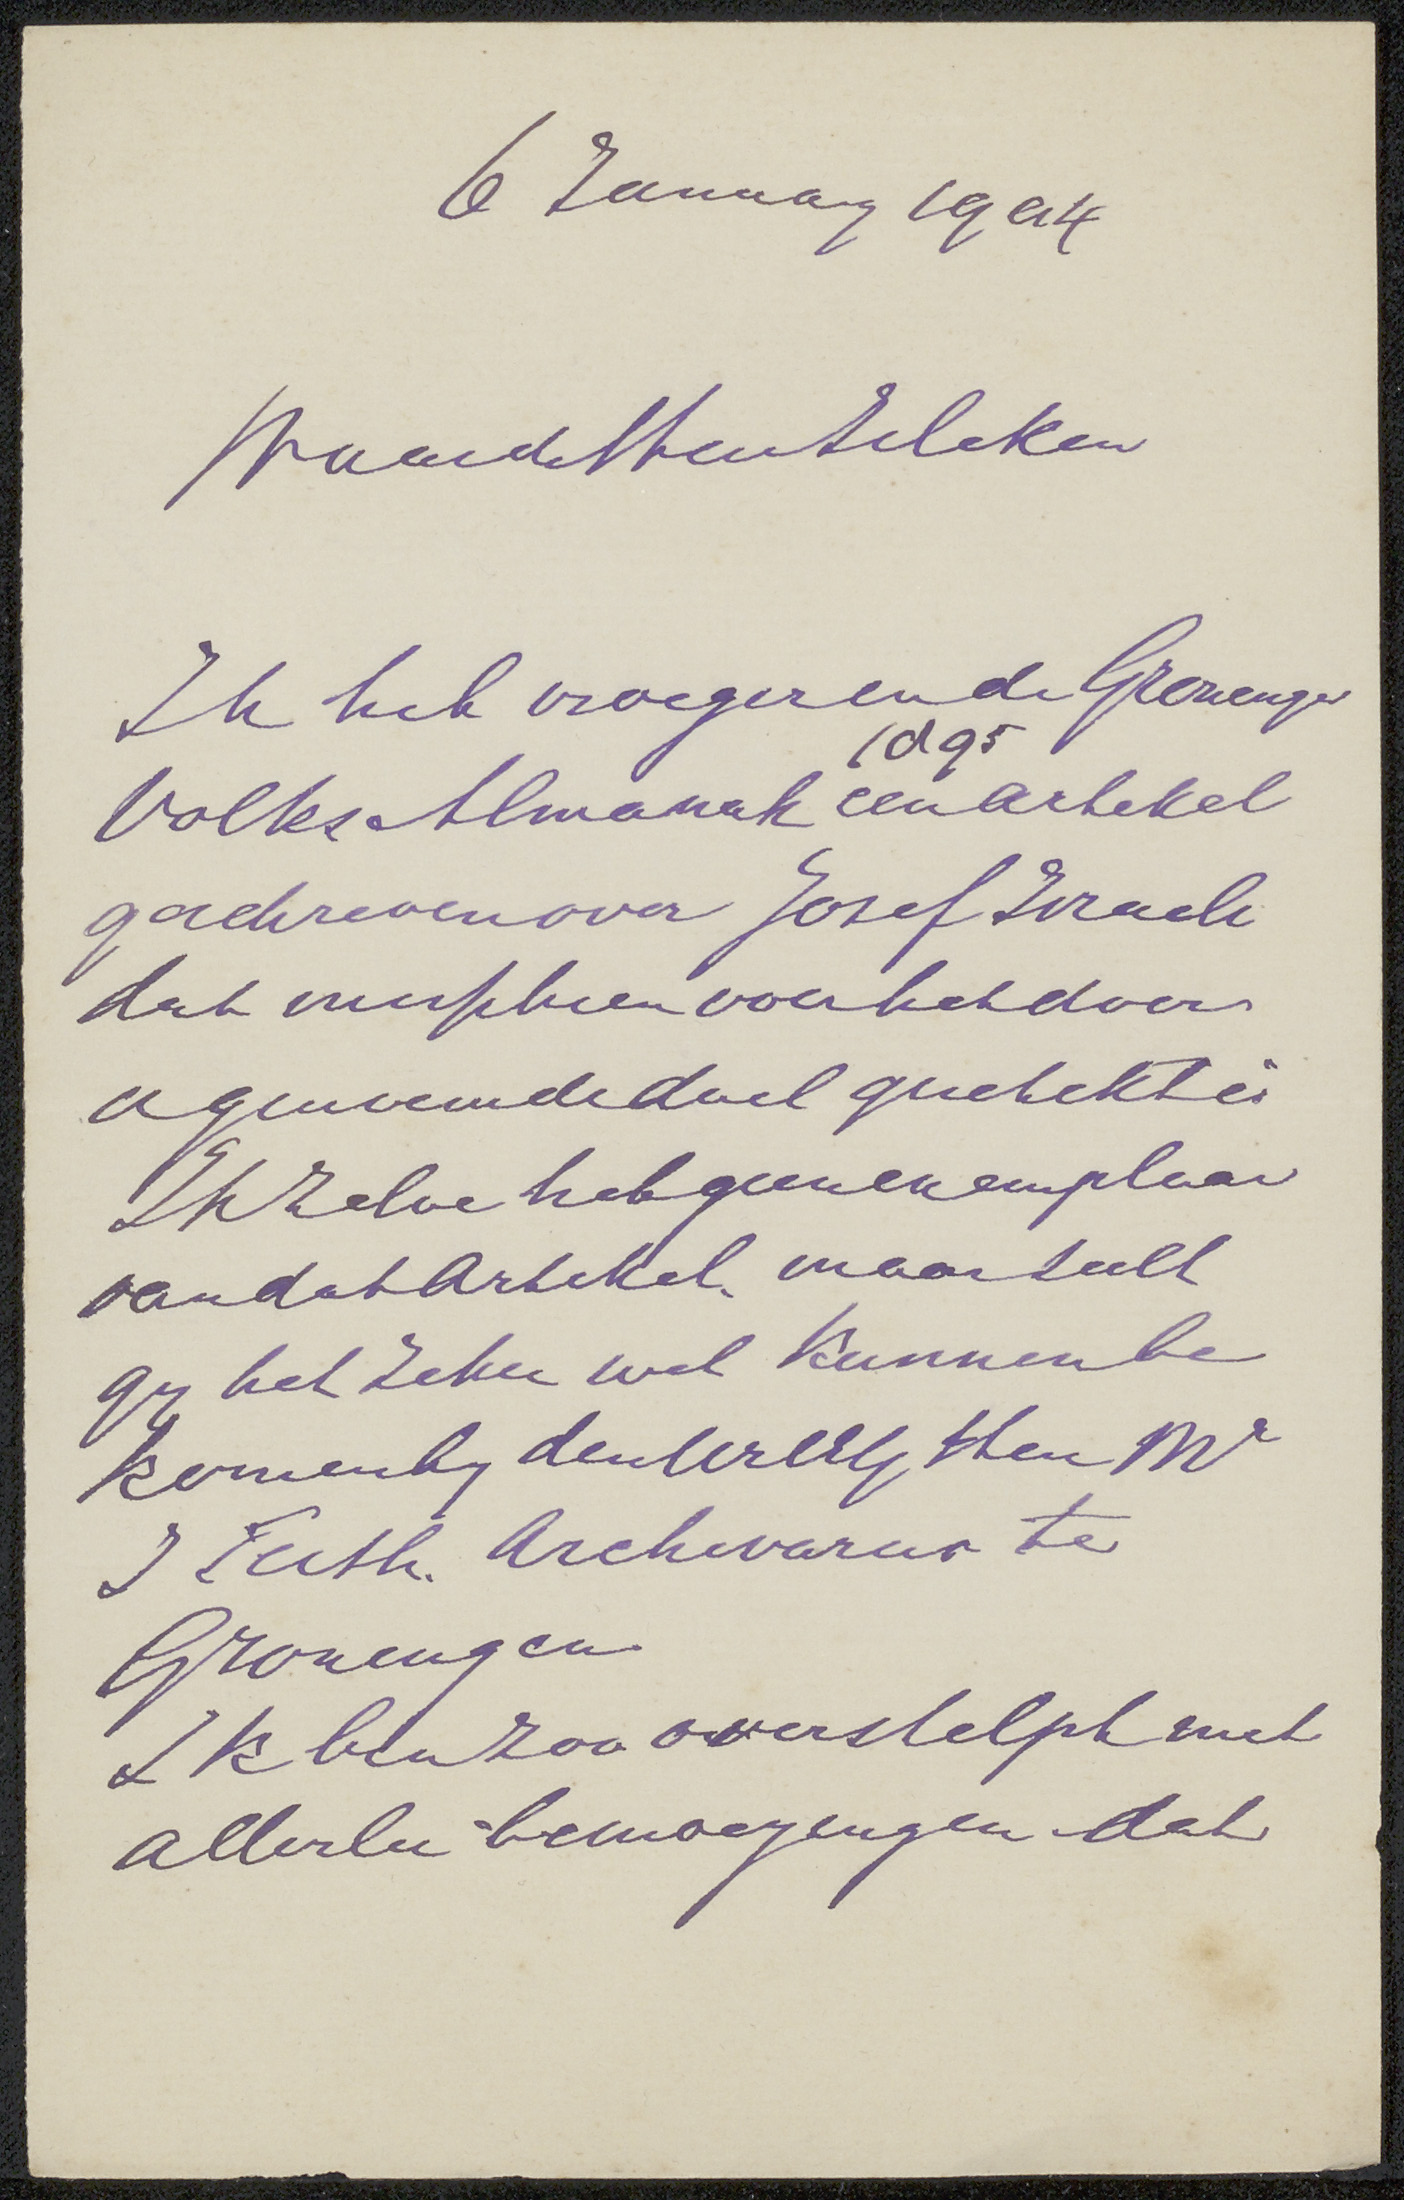 6 January 1904
Waarde Heer Zilcken
Ik heb vroeger in de Groninger
1895
Volks Almanak een artikel
geschreven over Jozef Israels
dat misschien voor het door
u genoemde doel geschikt is
Ik zelve heb geen exemplaar
van dat Artikel. maar zult
gy het zeker wel kunnen be
komen by den WelEdg Heer Mr
J Feith. Archivaris te
Groningen
Ik ben zoo overstelpt met
allerlei bemoeyingen dat